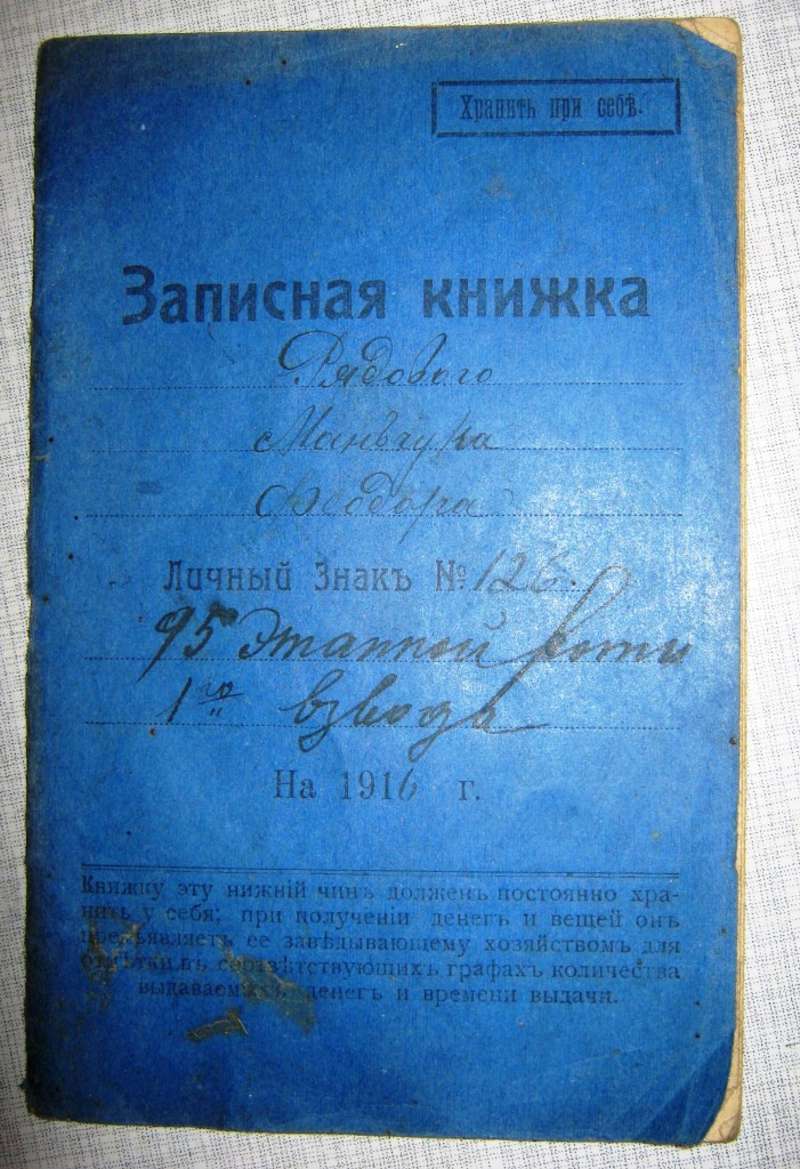 Хранить при себѣ.
Записная книжка
Рядового
Манчука
Ѳеодора
Личный Знакъ № 126.
95 Этапной роты
1го взвода
На 1916 г.
Книжку эту нижній чинъ долженъ постоянно хра-
нить у себя; при полученіи денегъ и вещей онъ
предъявляетъ ее завѣдывающему хозяйствомъ для
отмѣтки въ соотвѣтствующихъ графахъ количества
выдаваемыхъ денегъ и времени выдачи.